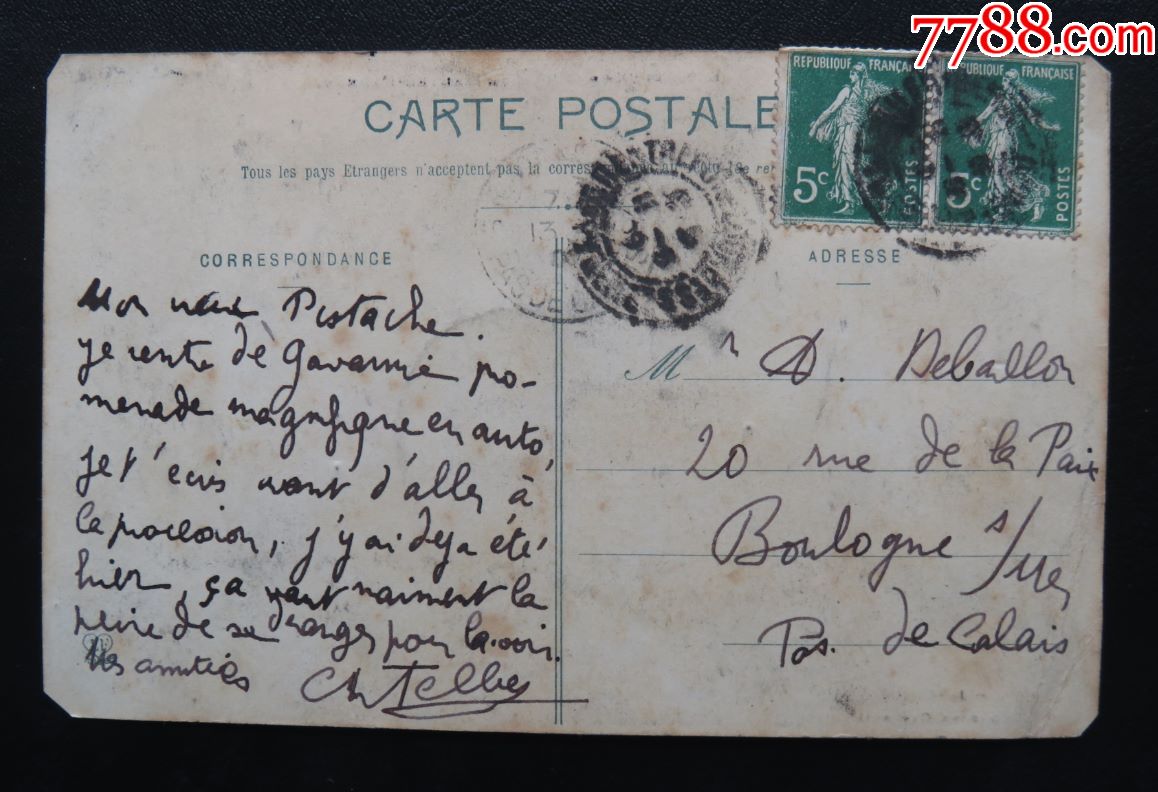 7788.com
REPUBLIQUE FRANÇAISE
5c
POSTES
REPUBLIQUE FRANÇAISE
5c
POSTES
CARTE POSTALE
Tous les pays Etrangers n'acceptent pas la
13
CORRESPONDANCE
Mon Pistache.
je rentre de Gavarnie pro-
menade magnifique en auto,
je t'ecris avant d'aller à
la procession, j'y ai deja été
hier, ça vaut vraiment la
peine de se deranger pour la voir.
Mes amitiés
ADRESSE
M r D. Deballon
20 rue de la Paix
Boulogne s/mer
Pas. de Calais